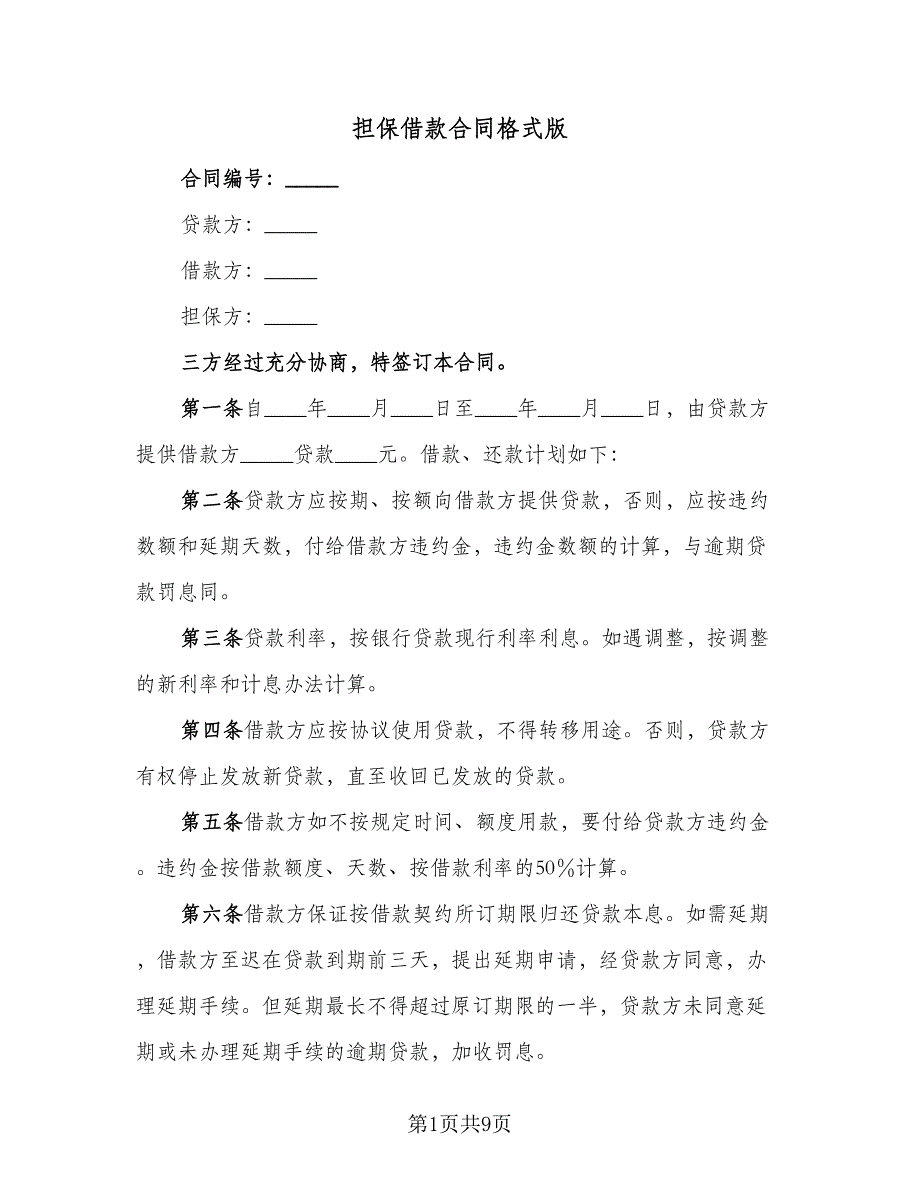 担保借款合同格式版
合同编号：_____
贷款方：_____
借款方：_____
担保方：_____
三方经过充分协商，特签订本合同。
第一条自____年____月____日至____年____月____日，由贷款方
提供借款方_____贷款____元。借款、还款计划如下：
第二条贷款方应按期、按额向借款方提供贷款，否则，应按违约
数额和延期天数，付给借款方违约金，违约金数额的计算，与逾期贷
款罚息同。
第三条贷款利率，按银行贷款现行利率利息。如遇调整，按调整
的新利率和计息办法计算。
第四条借款方应按协议使用贷款，不得转移用途。否则，贷款方
有权停止发放新贷款，直至收回已发放的贷款。
第五条借款方如不按规定时间、额度用款，要付给贷款方违约金
。违约金按借款额度、天数、按借款利率的50％计算。
第六条借款方保证按借款契约所订期限归还贷款本息。如需延期
，借款方至迟在贷款到期前三天，提出延期申请，经贷款方同意，办
理延期手续。但延期最长不得超过原订期限的一半，贷款方未同意延
期或未办理延期手续的逾期贷款，加收罚息。
第1页共9页